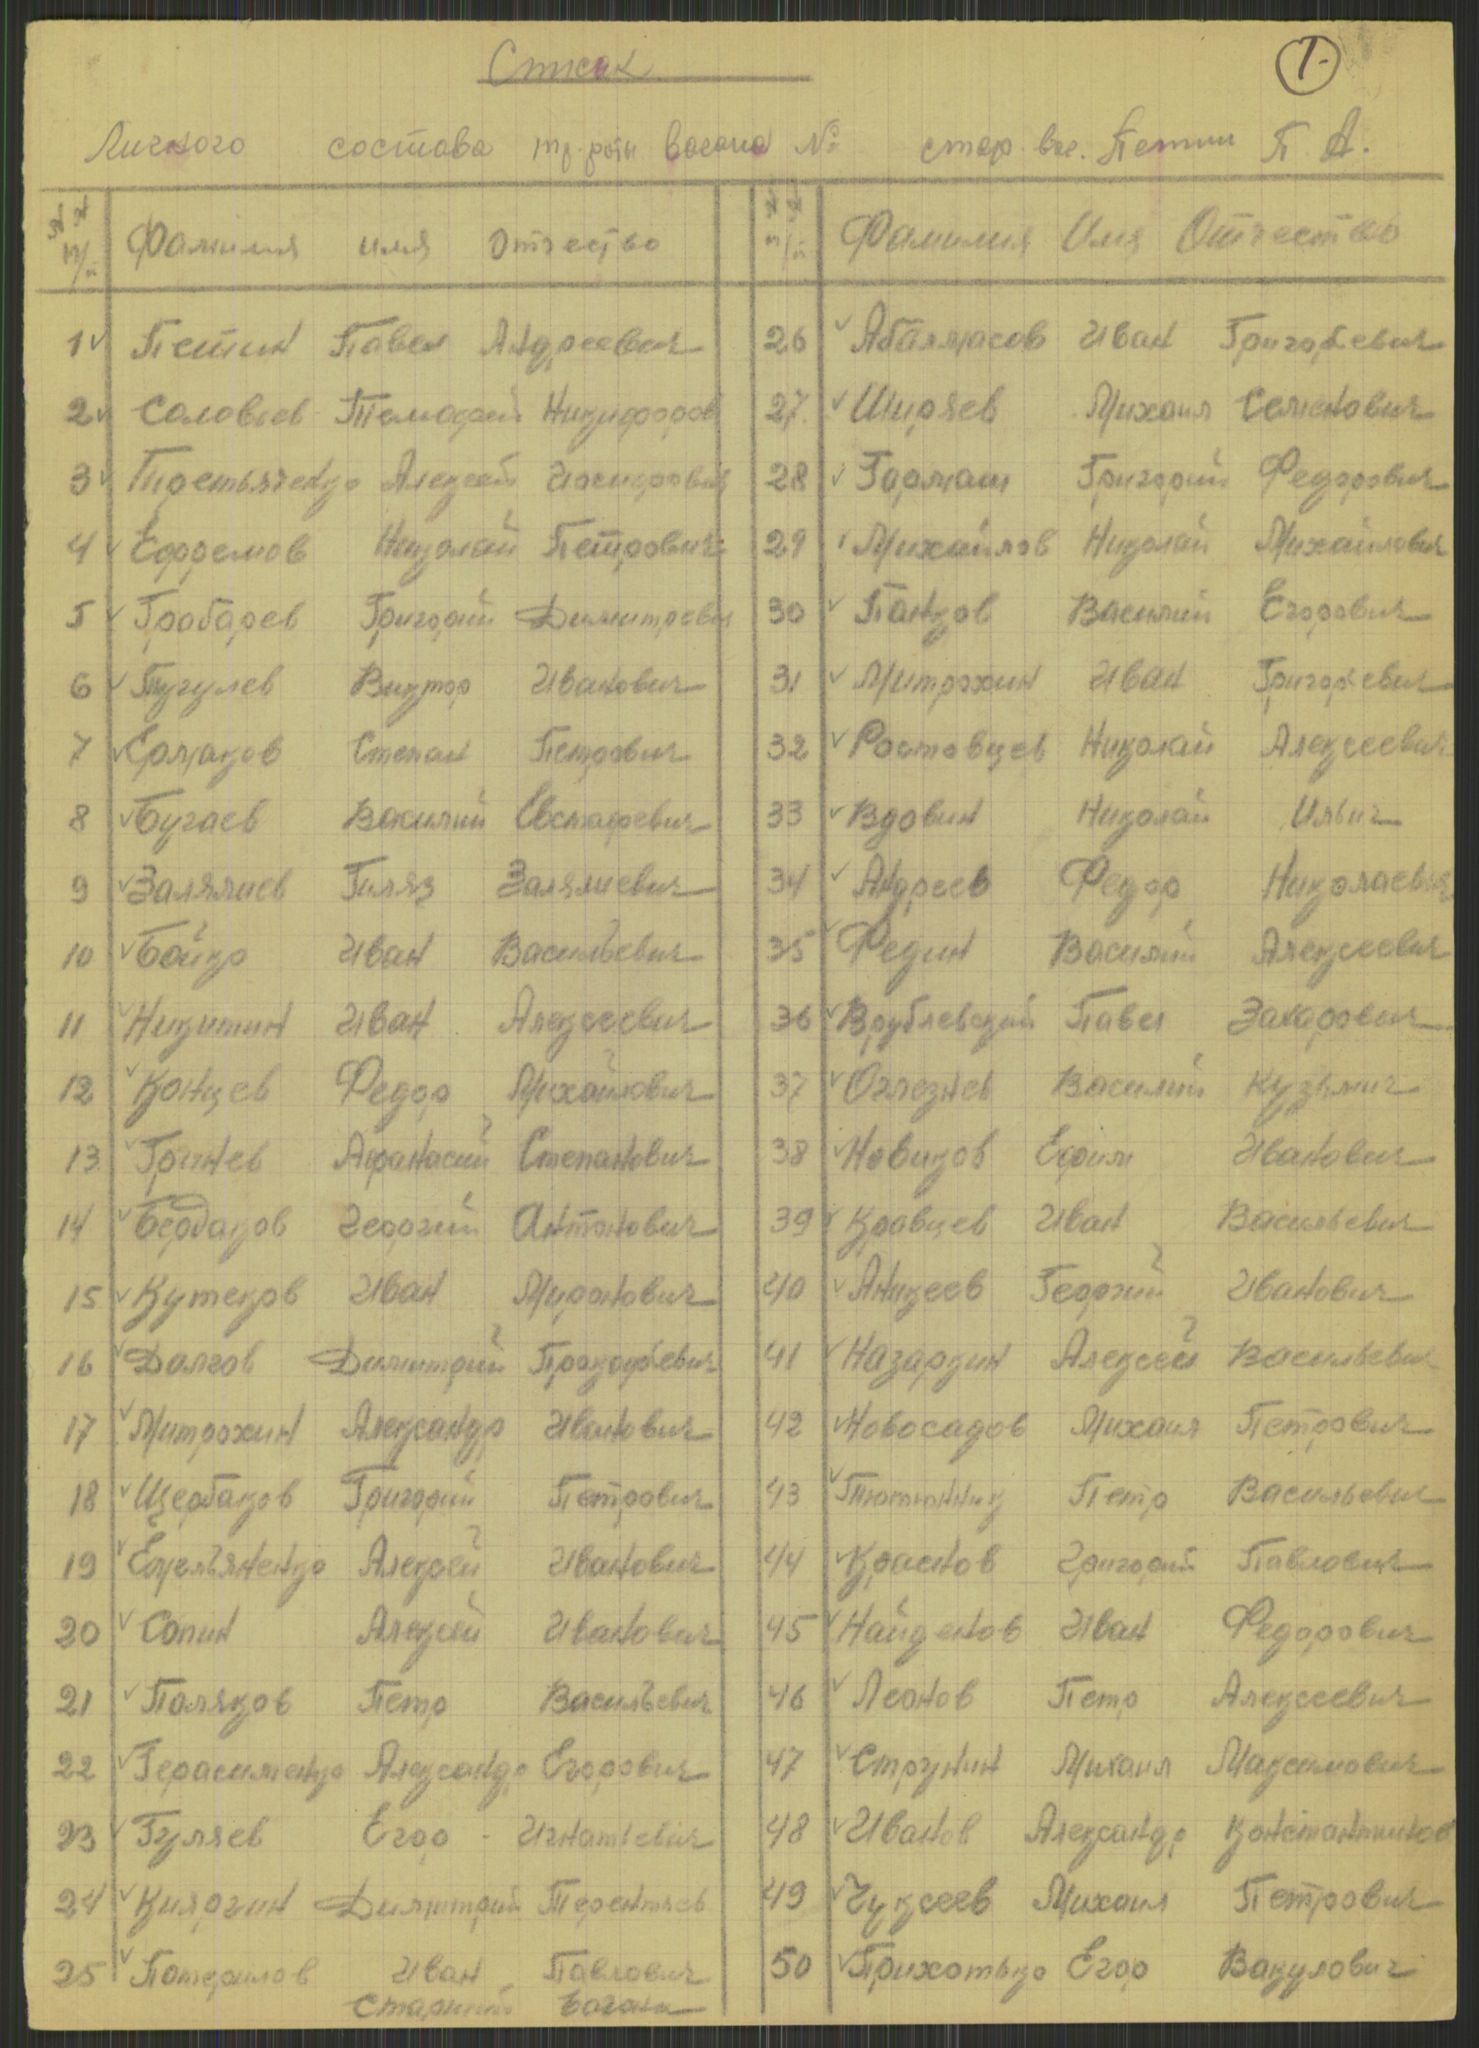 Список
1.
Личного состава тр. роты вагона № стар. ваг. Петин П. А.
№ № п/п Фамилия имя Отчество
1 Петин Павел Андреевич
2 Соловьев Тимофей Никифоров
3 Третьяченко Алексей
4 Ефремов Николай Петрович
5 Грабарев Григорий Димитревич
6 Пугулев Виктор Иванович
7 Ермаков Степан Петрович
8 Бугаев Василий Евстафевич
9 Залялиев Гиляз Залялиевич
10 Бойко Иван Васильевич
11 Никитин Иван Алексеевич
12 Концев Федор Михайлович
13 Гринев Афанасий Степанович
14 Бердаков Георгий Антонович
15 Кутеков Иван Миронович
16 Далгов Димитрий Прокофьевич
17 Митрохин Александр Иванович
18 Щербаков Григорий Петрович
19 Емельяненко Алексей Иванович
20 Сапин Алексей Иванович
21 Поляков Петр Васильевич
22 Герасименко Александр Егорович
23 Гуляев Егор Игнатьевич
24 Димитрий Терентьев
25 Иван Павлович
старший вагона
№ № п/п Фамилия Имя Отчество
26 Абалмасов Иван Григорьевич
27. Ширяев Михаил Семенович
28 Гармаш Григорий Федорович
29 Михайлов Николай Михайлович
30 Панков Василий Егорович
31 Митрохин Иван Григорьевич
32 Ростовцев Николай Алексеевич
33 Вдовин Николай Ильич
34 Андреев Федор Николаевич
35 Федин Василий Алексеевич
36 Врублевский Павел Захарович
37 Оглезнев Василий Кузьмич
38 Новиков Ефим Иванович
39 Кравцев Иван Васильевич
40 Аникеев Георгий Иванович
41 Назаркин Алексей Васильевич
42 Новосадов Михаил Петрович
43 Тютюнник Петр Васильевич
44 Краснов Григорий Павлович
45 Найденов Иван Федорович
46 Леонов Петр Алексеевич
47 Струнин Михаил Максимович
48 Иванов Александр Константинов
49 Чуксеев Михаил Петрович
50 Прихотько Егор Вакулович